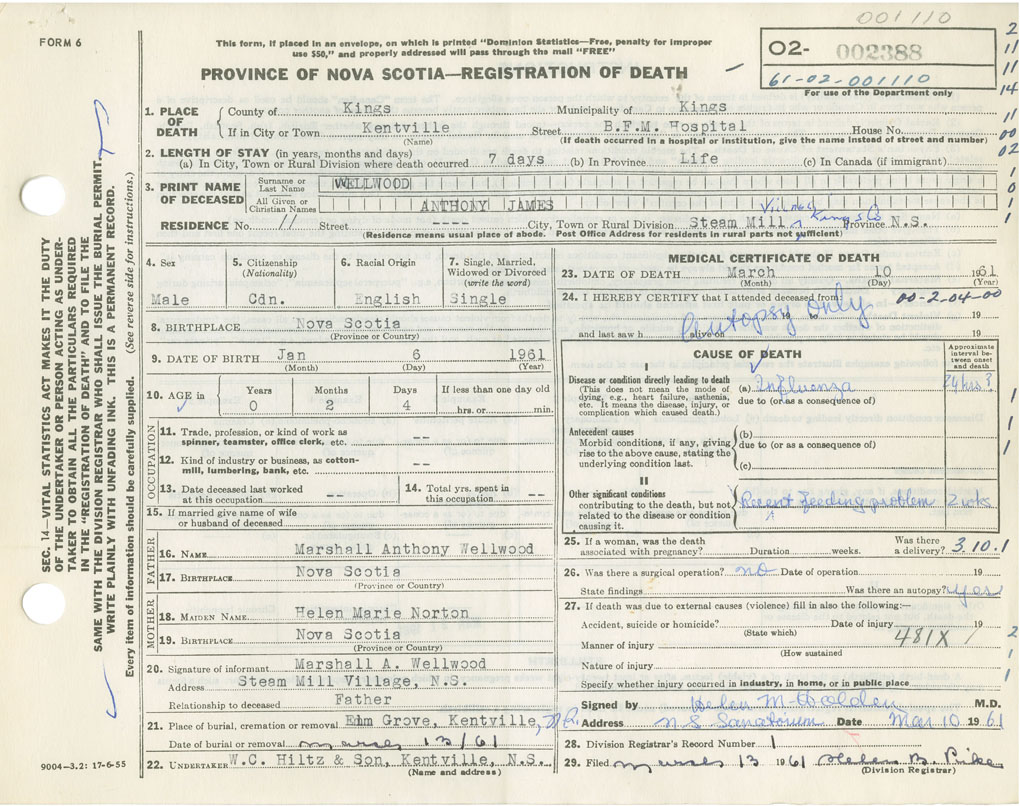 001110
FORM 6
This form, if placed in an envelope, on which is printed "Dominion Statistics—Free, penalty for improper
use $50," and properly addressed will pass through the mail "FREE"
O2- 002388
61-02-001110
For use of the Department only
PROVINCE OF NOVA SCOTIA—REGISTRATION OF DEATH
1. PLACE OF DEATH
County of Kings Municipality of Kings
If in City or Town Kentville Street B.F.M. Hospital House No.
(Name) (If death occurred in a hospital or institution, give the name instead of street and number)
2. LENGTH OF STAY (in years, months and days)
(a) In City, Town or Rural Division where death occurred 7 days (b) In Province Life (c) In Canada (if immigrant)
3. PRINT NAME OF DECEASED
Surname or Last Name WELLWOOD
All Given or Christian Names ANTHONY JAMES
RESIDENCE No. 11 Street ---- City, Town or Rural Division Steam Mill Village Kings Co Province N.S.
(Residence means usual place of abode. Post Office Address for residents in rural parts not sufficient)
4. Sex
Male
5. Citizenship
(Nationality)
Cdn.
6. Racial Origin
English
7. Single, Married,
Widowed or Divorced
(write the word)
Single
8. BIRTHPLACE Nova Scotia
(Province or Country)
9. DATE OF BIRTH Jan 6 1961
(Month) (Day) (Year)
10. AGE in
Years Months Days If less than one day old
0 2 4 hrs. or min.
OCCUPATION
11. Trade, profession, or kind of work as
spinner, teamster, office clerk, etc. --
12. Kind of industry or business, as cotton-
mill, lumbering, bank, etc. --
13. Date deceased last worked
at this occupation --
14. Total yrs. spent in
this occupation --
15. If married give name of wife
or husband of deceased
FATHER
16. NAME Marshall Anthony Wellwood
17. BIRTHPLACE Nova Scotia
(Province or Country)
MOTHER
18. MAIDEN NAME Helen Marie Norton
19. BIRTHPLACE Nova Scotia
(Province or Country)
20. Signature of informant Marshall A. Wellwood
Address Steam Mill Village, N.S.
Relationship to deceased Father
21. Place of burial, cremation or removal Elm Grove, Kentville,
Date of burial or removal 13/61
22. UNDERTAKER W.C. Hiltz & Son, Kentville, N.S.
(Name and address)
MEDICAL CERTIFICATE OF DEATH
23. DATE OF DEATH March 10 1961
(Month) (Day) (Year)
24. I HEREBY CERTIFY that I attended deceased from: 00-2-04-00
19 to 19
Autopsy Only
and last saw h alive on 19
CAUSE OF DEATH
Approximate
interval be-
tween onset
and death
I
Disease or condition directly leading to death
(This does not mean the mode of
dying, e.g., heart failure, asthenia,
etc. It means the disease, injury, or
complication which caused death.)
(a) Influenza 24 hrs?
due to (or as a consequence of)
Antecedent causes
Morbid conditions, if any, giving
rise to the above cause, stating the
underlying condition last.
(b)
due to (or as a consequence of)
(c)
II
Other significant conditions
contributing to the death, but not
related to the disease or condition
causing it.
Recent feeding problem 2 wks
25. If a woman, was the death
associated with pregnancy? Duration weeks.
Was there
a delivery? 3.10.1
26. Was there a surgical operation? no Date of operation 19
State findings Was there an autopsy? yes
27. If death was due to external causes (violence) fill in also the following:—
Accident, suicide or homicide? Date of injury 19
(State which)
481X
Manner of injury
(How sustained
Nature of injury
Specify whether injury occurred in industry, in home, or in public place
Signed by Helen M Holden M.D.
Address N S Sanatorium Date Mar 10 1961
28. Division Registrar's Record Number 1
29. Filed 13 1961
(Division Registrar)
SEC. 14—VITAL STATISTICS ACT MAKES IT THE DUTY
OF THE UNDERTAKER OR PERSON ACTING AS UNDER-
TAKER TO OBTAIN ALL THE PARTICULARS REQUIRED
IN THE "REGISTRATION OF DEATH" AND TO FILE THE
SAME WITH THE DIVISION REGISTRAR WHO SHALL ISSUE THE BURIAL PERMIT.
WRITE PLAINLY WITH UNFADING INK. THIS IS A PERMANENT RECORD.
Every item of information should be carefully supplied. (See reverse side for instructions.)
9004-3.2: 17-6-55
2
11
11
14
11
00
02
1
0
1
1
1
1
2
1
1